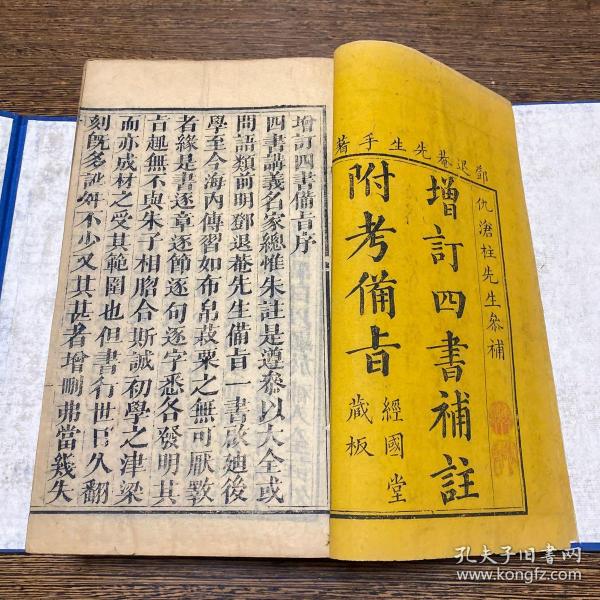 鄧退菴先生手著
仇滄柱先生叅補
增訂四書補註
附考備旨
經國堂
藏板
增訂四書備旨序
四書講義名家總惟朱註是遵叅以大全或
問語類前明鄧退菴先生備旨一書啟廸後
學至今海內傳習如布帛菽粟之無可厭斁
者緣是書逐章逐節逐句逐字悉各發明其
旨趣無不與朱子相脗合斯誠初學之津梁
而亦成材之受其範圍也但書行世日久翻
刻既多訛舛不少又其甚者增刪弗當幾失
孔夫子旧书网
www.kongfz.com